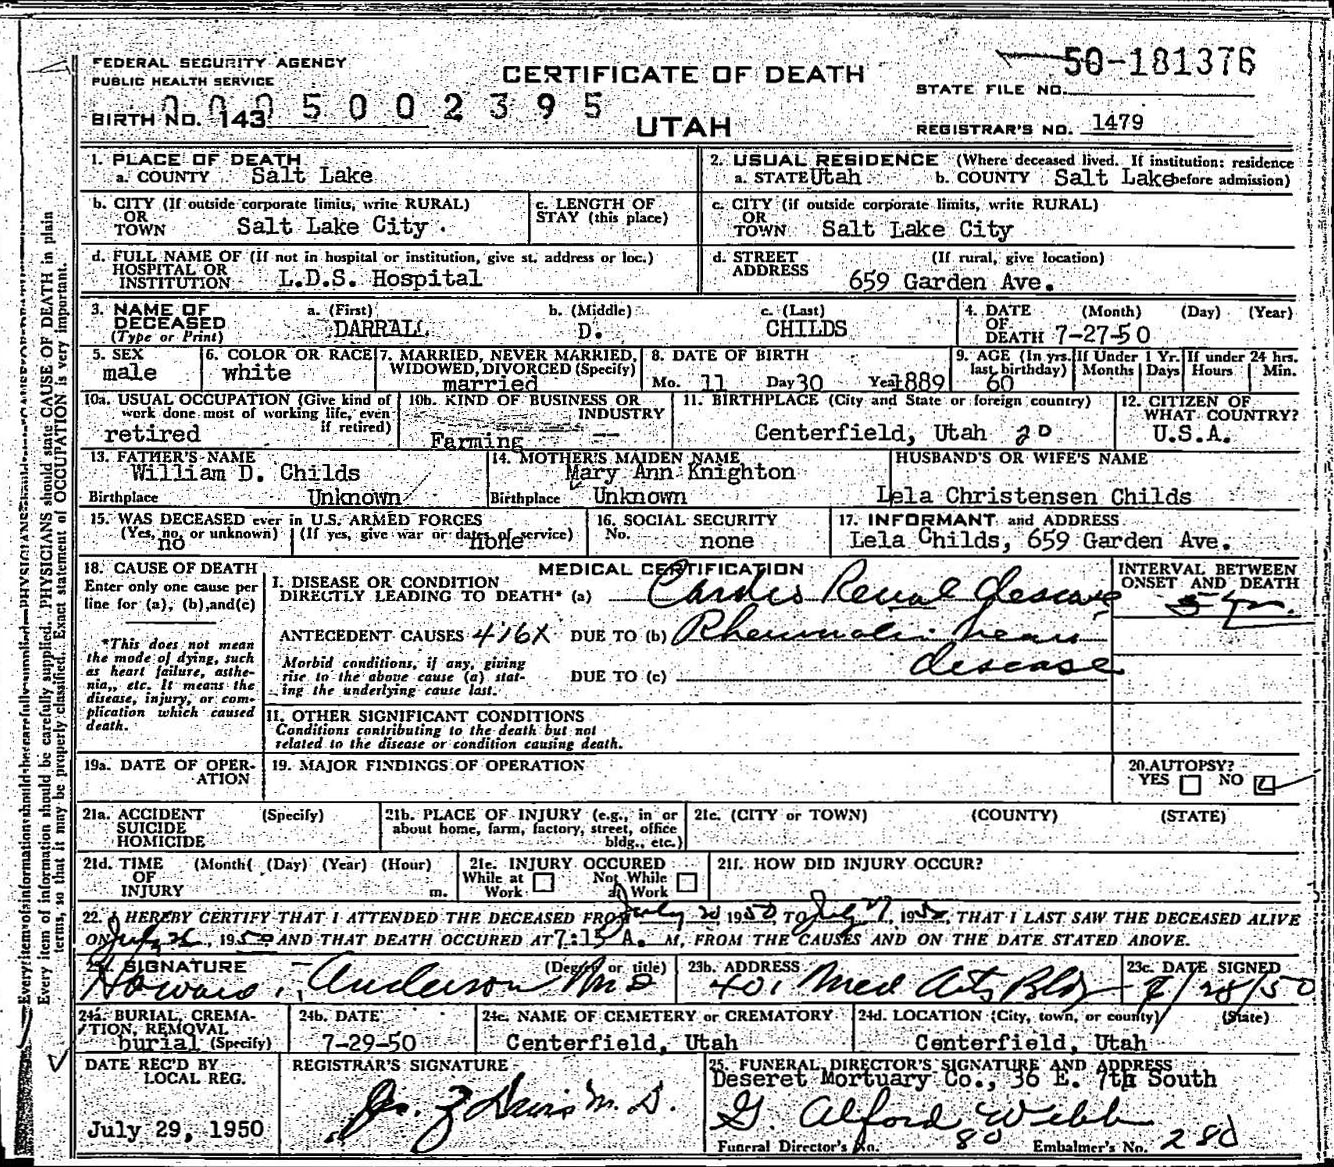 FEDERAL SECURITY AGENCY
PUBLIC HEALTH SERVICE
CERTIFICATE OF DEATH
50-181376
STATE FILE NO.
0005002395
BIRTH NO. 143
UTAH
REGISTRAR'S NO. 1479
1. PLACE OF DEATH
a. COUNTY Salt Lake
2. USUAL RESIDENCE (Where deceased lived. If institution: residence before admission)
a. STATE Utah b. COUNTY Salt Lake
b. CITY (If outside corporate limits, write RURAL)
OR TOWN Salt Lake City
c. LENGTH OF STAY (this place)
c. CITY (if outside corporate limits, write RURAL)
OR TOWN Salt Lake City
d. FULL NAME OF (If not in hospital or institution, give st. address or loc.)
HOSPITAL OR INSTITUTION L.D.S. Hospital
d. STREET ADDRESS (If rural, give location)
659 Garden Ave.
3. NAME OF DECEASED (Type or Print)
a. (First) DARRALL
b. (Middle) D.
c. (Last) CHILDS
4. DATE OF DEATH (Month) (Day) (Year)
7-27-50
5. SEX
male
6. COLOR OR RACE
white
7. MARRIED, NEVER MARRIED, WIDOWED, DIVORCED (Specify)
married
8. DATE OF BIRTH
Mo. 11 Day 30 Year 1889
9. AGE (In yrs. last birthday)
60
If Under 1 Yr. Months Days
If under 24 hrs. Hours Min.
10a. USUAL OCCUPATION (Give kind of work done most of working life, even if retired)
retired
10b. KIND OF BUSINESS OR INDUSTRY
Farming
11. BIRTHPLACE (City and State or foreign country)
Centerfield, Utah 20
12. CITIZEN OF WHAT COUNTRY?
U.S.A.
13. FATHER'S NAME
William D. Childs
Birthplace Unknown
14. MOTHER'S MAIDEN NAME
Mary Ann Knighton
Birthplace Unknown
HUSBAND'S OR WIFE'S NAME
Lela Christensen Childs
15. WAS DECEASED ever in U.S. ARMED FORCES
(Yes, no, or unknown) (If yes, give war or dates of service)
no none
16. SOCIAL SECURITY
No. none
17. INFORMANT and ADDRESS
Lela Childs, 659 Garden Ave.
18. CAUSE OF DEATH
Enter only one cause per line for (a), (b), and (c)
*This does not mean the mode of dying, such as heart failure, asthenia,, etc. It means the disease, injury, or complication which caused death.
MEDICAL CERTIFICATION
I. DISEASE OR CONDITION DIRECTLY LEADING TO DEATH* (a) Cardio Renal disease
INTERVAL BETWEEN ONSET AND DEATH
5 yr.
ANTECEDENT CAUSES 416X DUE TO (b) Rheumatic heart
disease
Morbid conditions, if any, giving rise to the above cause (a) stating the underlying cause last.
DUE TO (c)
II. OTHER SIGNIFICANT CONDITIONS
Conditions contributing to the death but not related to the disease or condition causing death.
19a. DATE OF OPERATION
19. MAJOR FINDINGS OF OPERATION
20. AUTOPSY?
YES NO
21a. ACCIDENT SUICIDE HOMICIDE (Specify)
21b. PLACE OF INJURY (e.g., in or about home, farm, factory, street, office bldg., etc.)
21c. (CITY or TOWN) (COUNTY) (STATE)
21d. TIME OF INJURY (Month( (Day) (Year) (Hour) m.
21e. INJURY OCCURED
While at Work Not While at Work
21f. HOW DID INJURY OCCUR?
22. I HEREBY CERTIFY THAT I ATTENDED THE DECEASED FROM July 1950 TO July 27, 1950, THAT I LAST SAW THE DECEASED ALIVE
ON July 26, 1950 AND THAT DEATH OCCURED AT 7:15 A. M, FROM THE CAUSES AND ON THE DATE STATED ABOVE.
23. SIGNATURE (Degree or title)
Howard T. Anderson M D
23b. ADDRESS
401 Med Arts Bldg
23c. DATE SIGNED
7/28/50
24a. BURIAL, CREMATION, REMOVAL (Specify)
burial
24b. DATE
7-29-50
24c. NAME OF CEMETERY or CREMATORY
Centerfield, Utah
24d. LOCATION (City, town, or county) (State)
Centerfield, Utah
DATE REC'D BY LOCAL REG.
July 29, 1950
REGISTRAR'S SIGNATURE
Davis M.D.
25. FUNERAL DIRECTOR'S SIGNATURE AND ADDRESS
Deseret Mortuary Co., 36 E. 7th South
G. Alford Webb
Funeral Director's No. 80 Embalmer's No. 280
Every item of information should be carefully supplied. PHYSICIANS should state CAUSE OF DEATH in plain
terms, so that it may be properly classified. Exact statement of OCCUPATION is very important.